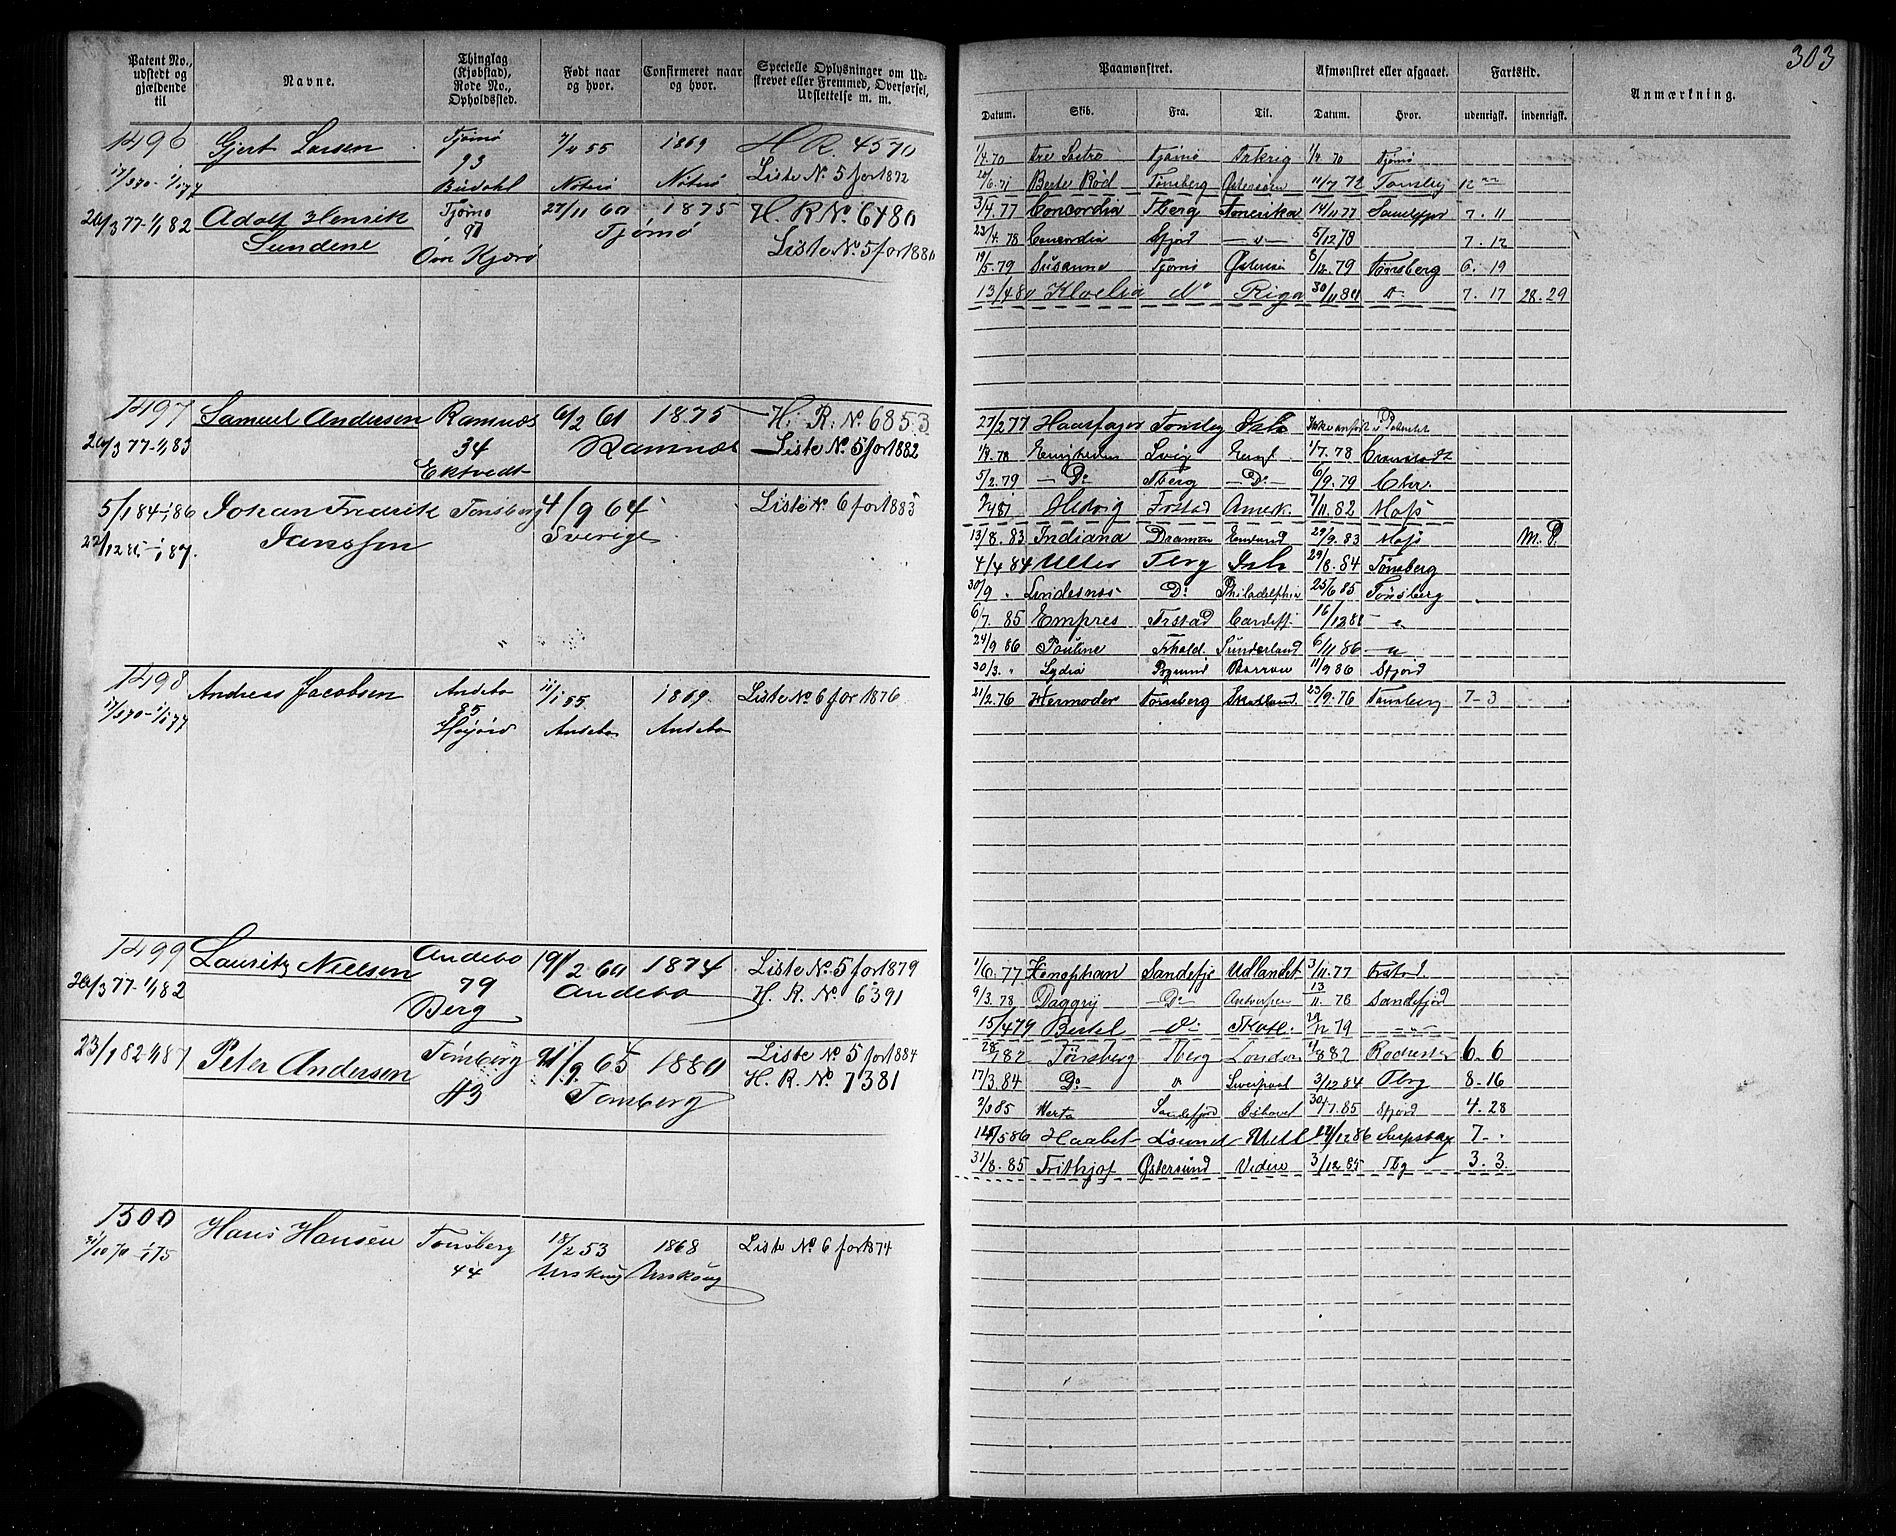 303
Patent No., udstedt og gjældende til
Navne.
Thinglag (Kjøbstad), Rode No., Opholdssted.
Født naar og hvor.
Confirmeret naar og hvor.
Specielle Oplysninger om Udskrevet eller Fremmed, Overførsel, Udslettelse m. m.
1496 Gjert Larsen Tjømø 7/4 55 1869 H R. 4570
17/3 70-1/1 74 93 Liste No 5 for 1872
Budahl Nøterø Nøterø
20/3 77-1/1 82 Adolf Henrik Tjømø 27/11 60 1875 H. R No 6480
Sundene 91 Tjømø
Liste No 5 for 1880
1497 Samuel Andersen Ramnæs 6/2 61 1875 H. R. No 6853
20/3 77-1/1 83 34 Ramnæs Liste No 5 for 1882
Ektvedt
5/1 84-1/1 86 Johan Fredrik Tønsberg 4/9 64 Liste No 6 for 1883
Janssen Sverige
1498 Andreas Jacobsen Andebo 11/1 55 1869 Liste No 6 for 1876
17/3 70-1/1 77 85
Høijord Andebo Andebo
1499 Lauritz Nielsen Andebo 19/2 60 1874 Liste No 5 for 1879
20/3 77-1/1 82 79 Andebo H. R. No 6391
Berg
23/1 82-1/1 87 Peter Andersen Tønsberg 65 1880 Liste No 5 for 1884
43 Tønsberg H. R. No 7381
1500 Hans Hansen Tønsberg 18/2 53 1868 Liste No 6 for 1874
44 Urskoug Urskoug
Paamønstret.
Afmønstret eller afgaaet.
Fartstid.
Anmærkning.
Datum. Skib. Fra. Til. Datum. Hvor. udenrigsk. indenrigsk.
1/4 70 Tre Søstre Tjømø 70 Tjømø
Berte Rød Tønsberg Østersøen 11/7 72 Tønsberg 12
3/4 77 Concordia Tberg Amerika 14/11 77 Sandefjor 7. 11
23/4. 78 Concordia Sfjord 5/12 78 7. 12
19/5. 79 Susanna Tjømø 8/12. 79 Tønsberg 6. 19
13/4 80 Riga 30/11 80 7. 17 28. 29
27/2 77 Haarfager Tønsberg
78 Enigheden 1/7. 78
5/2. 79 Do Tberg Do 6/9. 79 Chr.
Hedvig Frstad Amek. 7/11. 82 Moss
13/8. 83 Indiana Dramen 29/9. 83 Moss M. P.
4/4 84 29/8. 84 Tønsberg
30/9 Lindesnes Do Philadelphia 25/6 85 Tønsberg
6/7. 85 Empres Frstad Cardiff 16/12 85
24/9 86 Pauline Frhald. Sunderland 6/11 86
30/3. Lydia 11/9 86 Sfjord
21/2. 76 Hermoder Tønsberg Skotland 23/9. 76 Tønsberg 7-3
1/6. 77 Xenophon Sandefje Udlandet 3/11. 77 Frstad
9/3. 78 Daggry Do Antwerpen 13/11. 78 Sandefjord
15/4 79 Bertel Skotl. 79
82 Tønsberg Tberg London 82 Rochester 6. 6
17/3. 84 Do Liverpool 3/12 84 Tbrg 8. 16
85 Herta Sandefjord 30/7. 85 Sfjord 4. 28
5 86 Haabet 12 86 Sarpsborg 7
31/8. 85 Frithjof Østersund 3/12. 85 Tbg 3. 3.